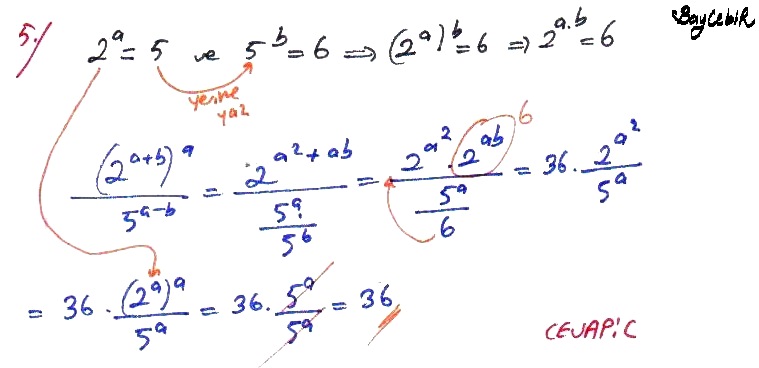 BayCebiR
5./ 2^a = 5 ve 5^b = 6 ⇒ (2^a)^b = 6 ⇒ 2^{a.b} = 6
yerine
yaz
(2^{a+b})^a / 5^{a-b} = 2^{a^2+ab} / (5^a / 5^b) = 2^{a^2} . 2^{ab} / (5^a / 6) = 36 . 2^{a^2} / 5^a
6
= 36 . (2^a)^a / 5^a = 36 . 5^a / 5^a = 36
CEVAP: C